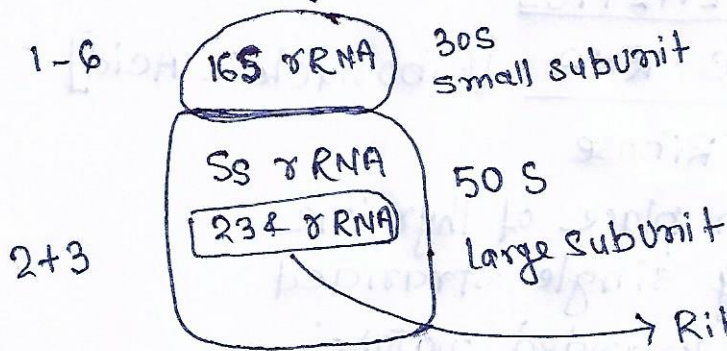 1-6
16S rRNA
30S
small subunit
5S rRNA
23S rRNA
50 S
large subunit
2+3